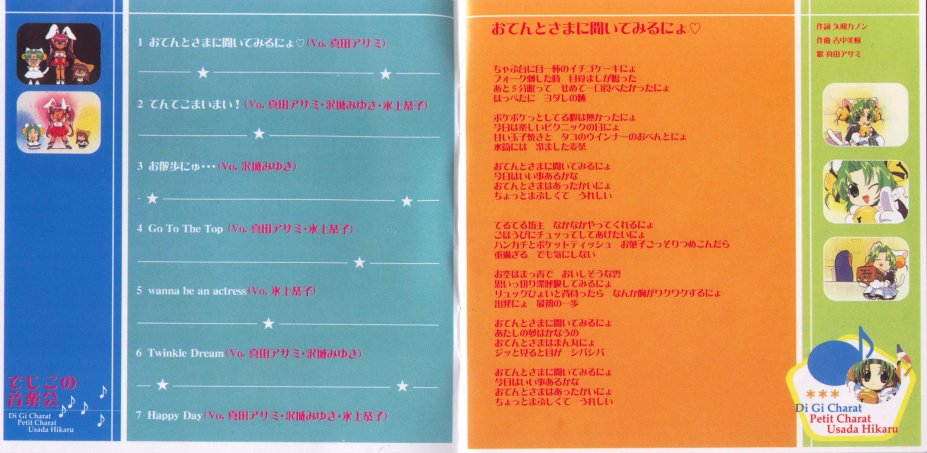 1 おてんとさまに聞いてみるにょ♡(Vo. 真田アサミ)
2 てんてこまいまい！(Vo. 真田アサミ・沢城みゆき・氷上恭子)
3 お散歩にゅ・・・(Vo. 沢城みゆき)
4 Go To The Top (Vo. 真田アサミ・氷上恭子)
5 wanna be an actress(Vo. 氷上恭子)
6 Twinkle Dream(Vo. 真田アサミ・沢城みゆき)
7 Happy Day(Vo. 真田アサミ・沢城みゆき・氷上恭子)
でじこの
音楽会
Di Gi Charat
Petit Charat
Usada Hikaru
おてんとさまに聞いてみるにょ♡
ちゃぶ台に目一杯のイチゴケーキにょ
フォーク刺した時 目覚ましが鳴った
あと5分眠って せめて一口食べたかったにょ
ほっぺたに ヨダレの跡
ボケボケっとしてる暇は無かったにょ
今日は楽しいピクニックの日にょ
甘い玉子焼きと タコのウインナーのおべんとにょ
水筒には 冷ました麦茶
おてんとさまに聞いてみるにょ
今日はいい事あるかな
おてんとさまはあったかいにょ
ちょっとまぶしくて うれしい
てるてる坊主 なかなかやってくれるにょ
ごほうびにチュッってしてあげたいにょ
ハンカチとポケットティッシュ お菓子ごっそりつめこんだら
重過ぎる でも気にしない
お空はまっ青で おいしそうな雲
思いっ切り深呼吸してみるにょ
リュックひょいと背負ったら なんか胸がワクワクするにょ
出発にょ 最初の一歩
おてんとさまに聞いてみるにょ
あたしの夢はかなうの
おてんとさまはまん丸にょ
ジッと見ると目が シバシバ
おてんとさまに聞いてみるにょ
今日はいい事あるかな
おてんとさまはあったかいにょ
ちょっとまぶしくて うれしい
作詞 久樹カノン
作曲 吉中美樹
歌 真田アサミ
Di Gi Charat
Petit Charat
Usada Hikaru